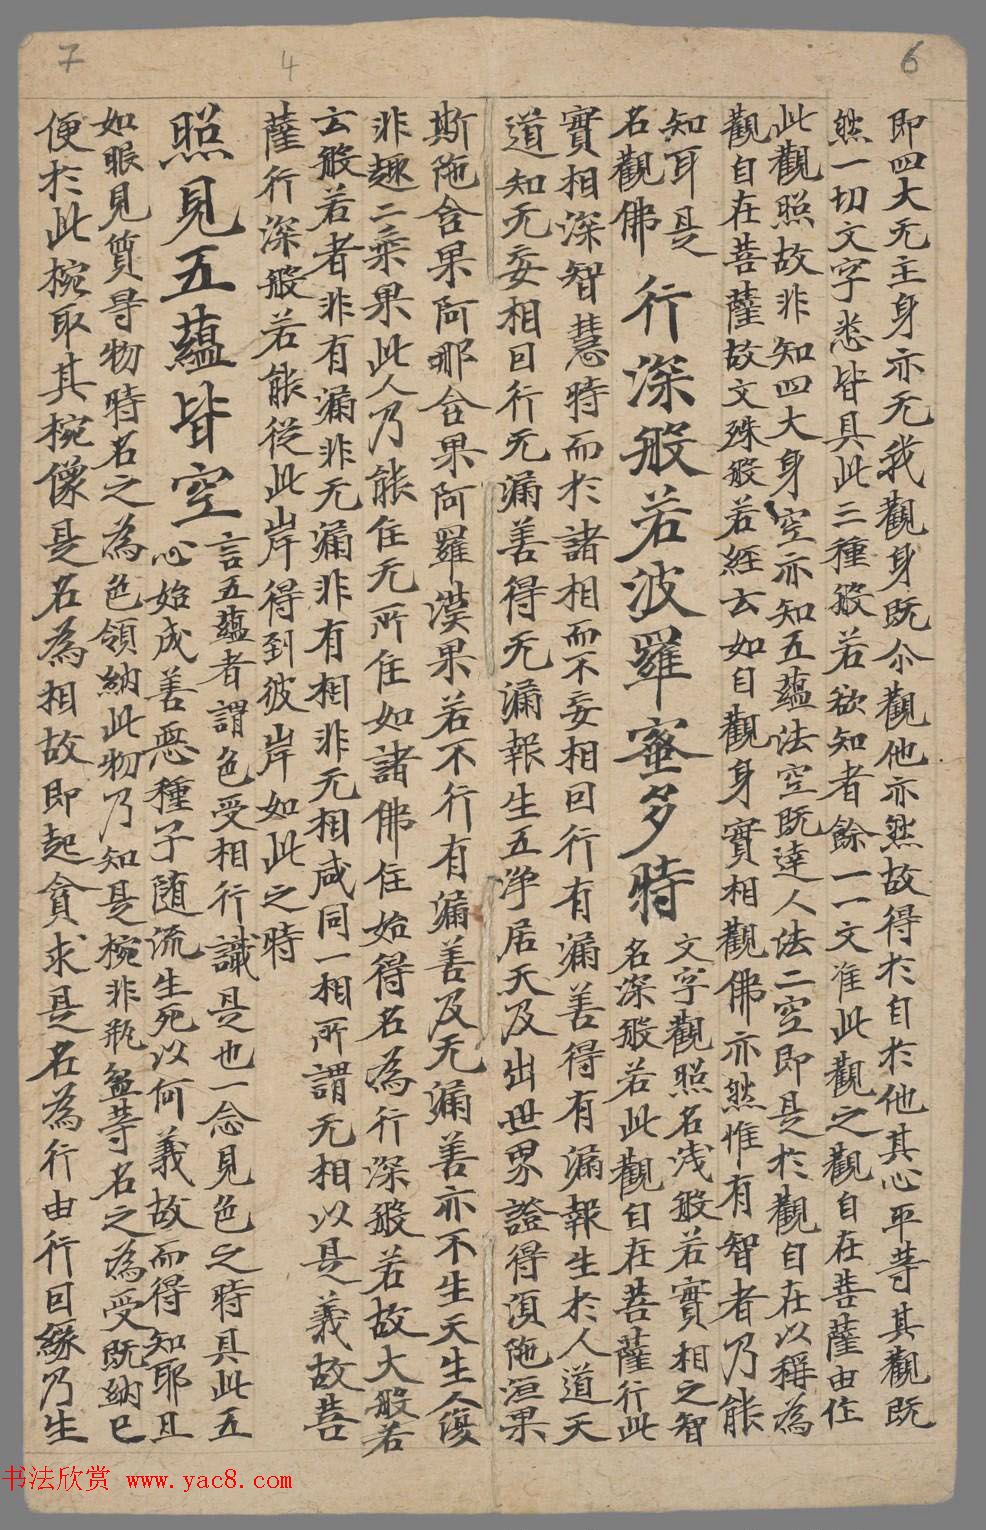 6
即四大无主身亦无我觀身既尒觀他亦然故得於自於他其心平等其觀既
然一切文字悉皆具此三種般若欲知者餘一一文准此觀之觀自在菩薩由住
此觀照故非知四大身空亦知五蘊法空既達人法二空即是於觀自在以稱為
觀自在菩薩故文殊般若經云如自觀身實相觀佛亦然惟有智者乃能
知耳是
名觀佛
行深般若波羅蜜多時
文字觀照名浅般若實相之智
名深般若此觀自在菩薩行此
實相深智慧時而於諸相而不妄相回行有漏善得有漏報生於人道天
道知无妄相回行无漏善得无漏報生五净居天及出世界證得湏陁洹果
4
斯陁含果阿那含果阿羅漢果若不行有漏善及无漏善亦不生天生人復
非趣二乘果此人乃能住无所住如諸佛住始得名為行深般若故大般若
云般若者非有漏非无漏非有相非无相咸同一相所謂无相以是義故菩
薩行深般若能從此岸得到彼岸如此之時
照見五蘊皆空
言五蘊者謂色受相行識是也一念見色之時具此五
心始成善惡種子随流生死以何義故而得知耶且
如眼見質㝵物時名之為色領納此物乃知是椀非瓶盆等名之為受既納已
便於此椀取其椀像是名為相故即起貪求是名為行由行回緣乃生
7
书法欣赏 www.yac8.com